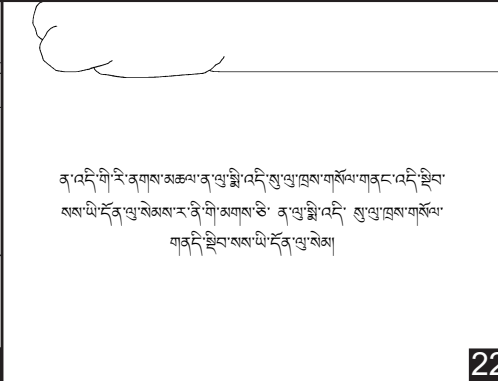 ན་འདི་གི་རི་ནགས་མཆལ་ན་ལུ་སྨི་འདི་སུ་ལུ་ཁྲས་གསོལ་གནང་འདི་སྡིབ་
སས་ཡི་དོན་ལུ་སེམས་ར་ནི་གི་མགས་ཅི་ ན་ལུ་སྨི་འདི་ སུ་ལུ་ཁྲས་གསོལ་
གནདི་སྡིབ་སས་ཡི་དོན་ལུ་སེམ།
22